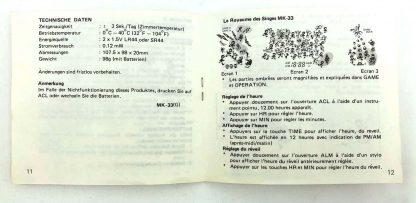 TECHNISCHE DATEN
Zeitgenauigkeit : ± 3 Sek./Tag (Zimmertemperatur)
Betriebstemperatur : 0°C – 40°C (32 – 104°F)
Energiequelle : 2 x 1.5V LR44 oder SR44
Stromverbrauch : 0.12 mW
Abmessungen : 107.5 x 98 x 20mm
Gewicht : 98g (mit Batterien)
Änderungen sind fristlos vorbehalten.
Anmerkung
Im Falle der Nichtfunktionierung dieses Produktes, drucken Sie auf
ACL oder wechseln Sie die Batterien.
MK-33(G)
11
Le Royaume des Singes MK-33
Ecran 1 Ecran 2 Ecran 3
* Les parties ombrées seront magnifiées et expliquées dans GAME
et OPERATION.
Réglage de l'heure
* Appuyer doucement sur l'ouverture ACL à l'aide d'un instru-
ment pointu, 12.00 heures apparaît.
* Appuyer sur HR pour régler l'heure.
* Appuyer sur MIN pour régler les minutes.
Affichage de l'heure
* Appuyer sur la touche TIME pour afficher l'heure, du reveil.
* L'heure est affichée en 12 heures avec indication de PM/AM
(après-midi/matin)
Réglage du réveil
* Appuyer doucement sur l'ouverture ALM à l'aide d'un stylo
pour afficher l'heure du réveil antérieurement réglée.
* Appuyer sur les touches HR et MIN pour régler l'heure du réveil.
12